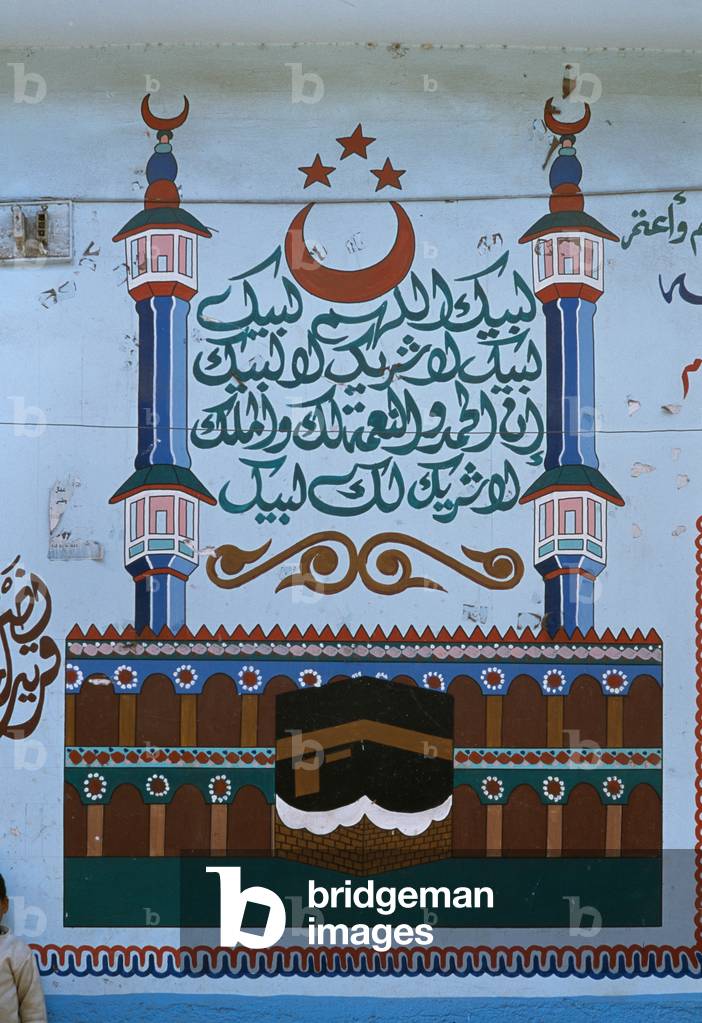 لبيك اللهم لبيك
لبيك لا شريك لك لبيك
إن الحمد والنعمة لك والملك
لا شريك لك لبيك
وأعتمر
نصر
قريب
bridgeman
images